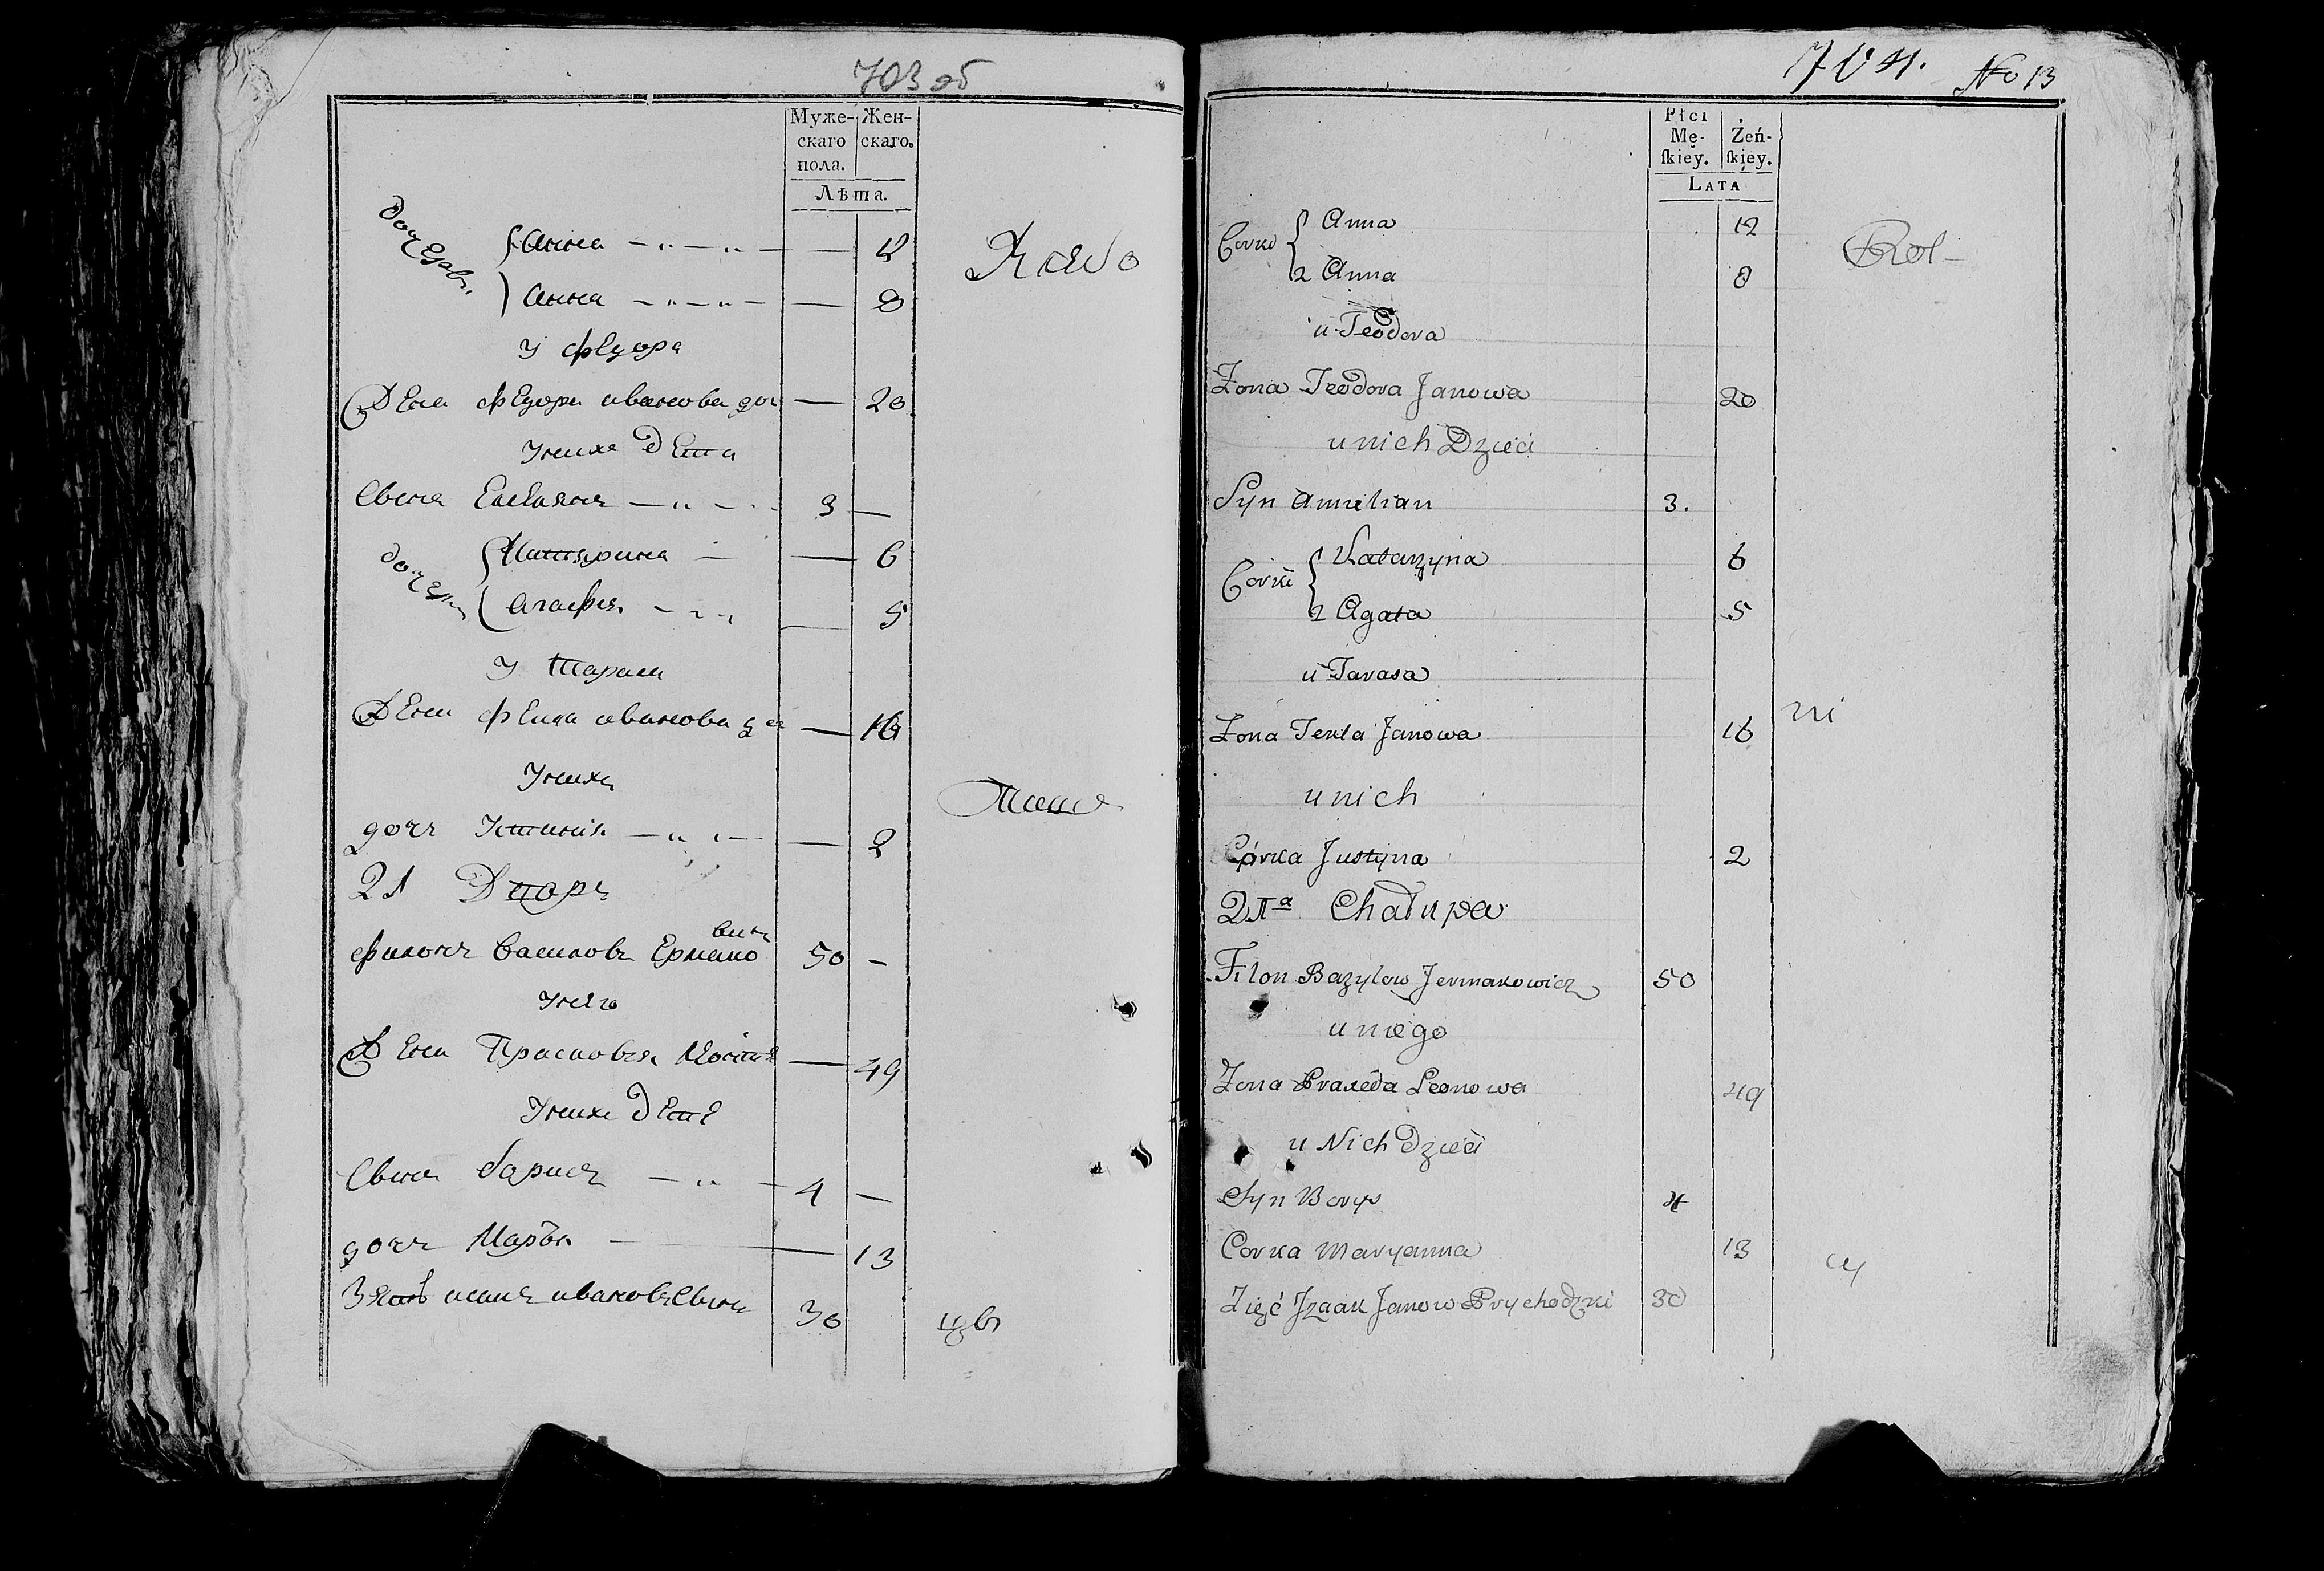 703 об
Муже-
скаго
пола.
Жен-
скаго.
Лѣта.
дочерѣ
Анна 12
Анна 8
У Федора
Жена Федора иванова доч 20
У нихъ дети
Сынъ 3
дочери
Катерина 6
Агафія 5
У Тараса
Жена Фекла иванова до 16
У нихъ
дочь Устинія 2
21 Дворъ
Филонъ Василовъ Ермако
вичъ 50
У него
Жена Прасковія 49
У нихъ дети
Сынъ Борисъ 4
дочь Марья 13
Зять исакъ ивановъ Сынъ 30
704. No 13
Płci
Mę-
ſkiey.
Żeń-
ſkiey.
LATA
Corki
Anna 12
2 Anna 8
Rol-
u Teodora
Zona Teodora Janowa 20
u nich Dzieci
Syn Amelian 3.
Corki
Katarzyna 6
2 Agata 5
u Tarasa
Zona Tekla Janowa 16
ni
u nich
Córka Justyna 2
21a Chałupa
Filon Bazylow Jermakowicz 50
u niego
Zona Praxeda Leonowa 49
u Nich dzieci
Syn Borys 4
Corka Maryanna 13
cy
Zięć Jzaak Janow Prychodzki 30